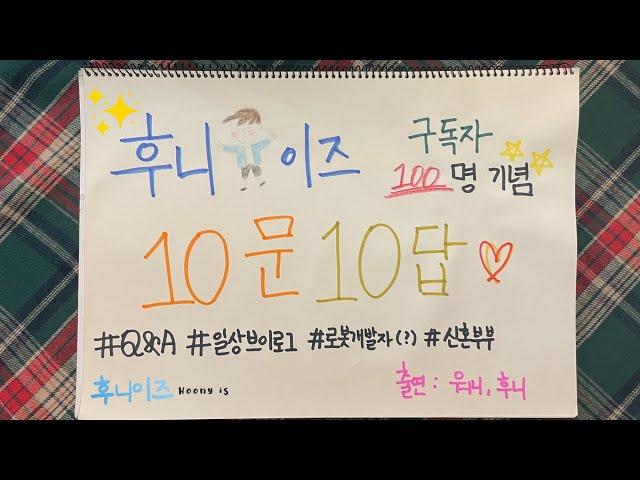 후니 이즈
구독자
100명 기념
10문 10답
#Q&A #일상브이로그 #로봇개발자(?) #신혼부부
후니이즈 Hoony is
출연 : 워니, 후니